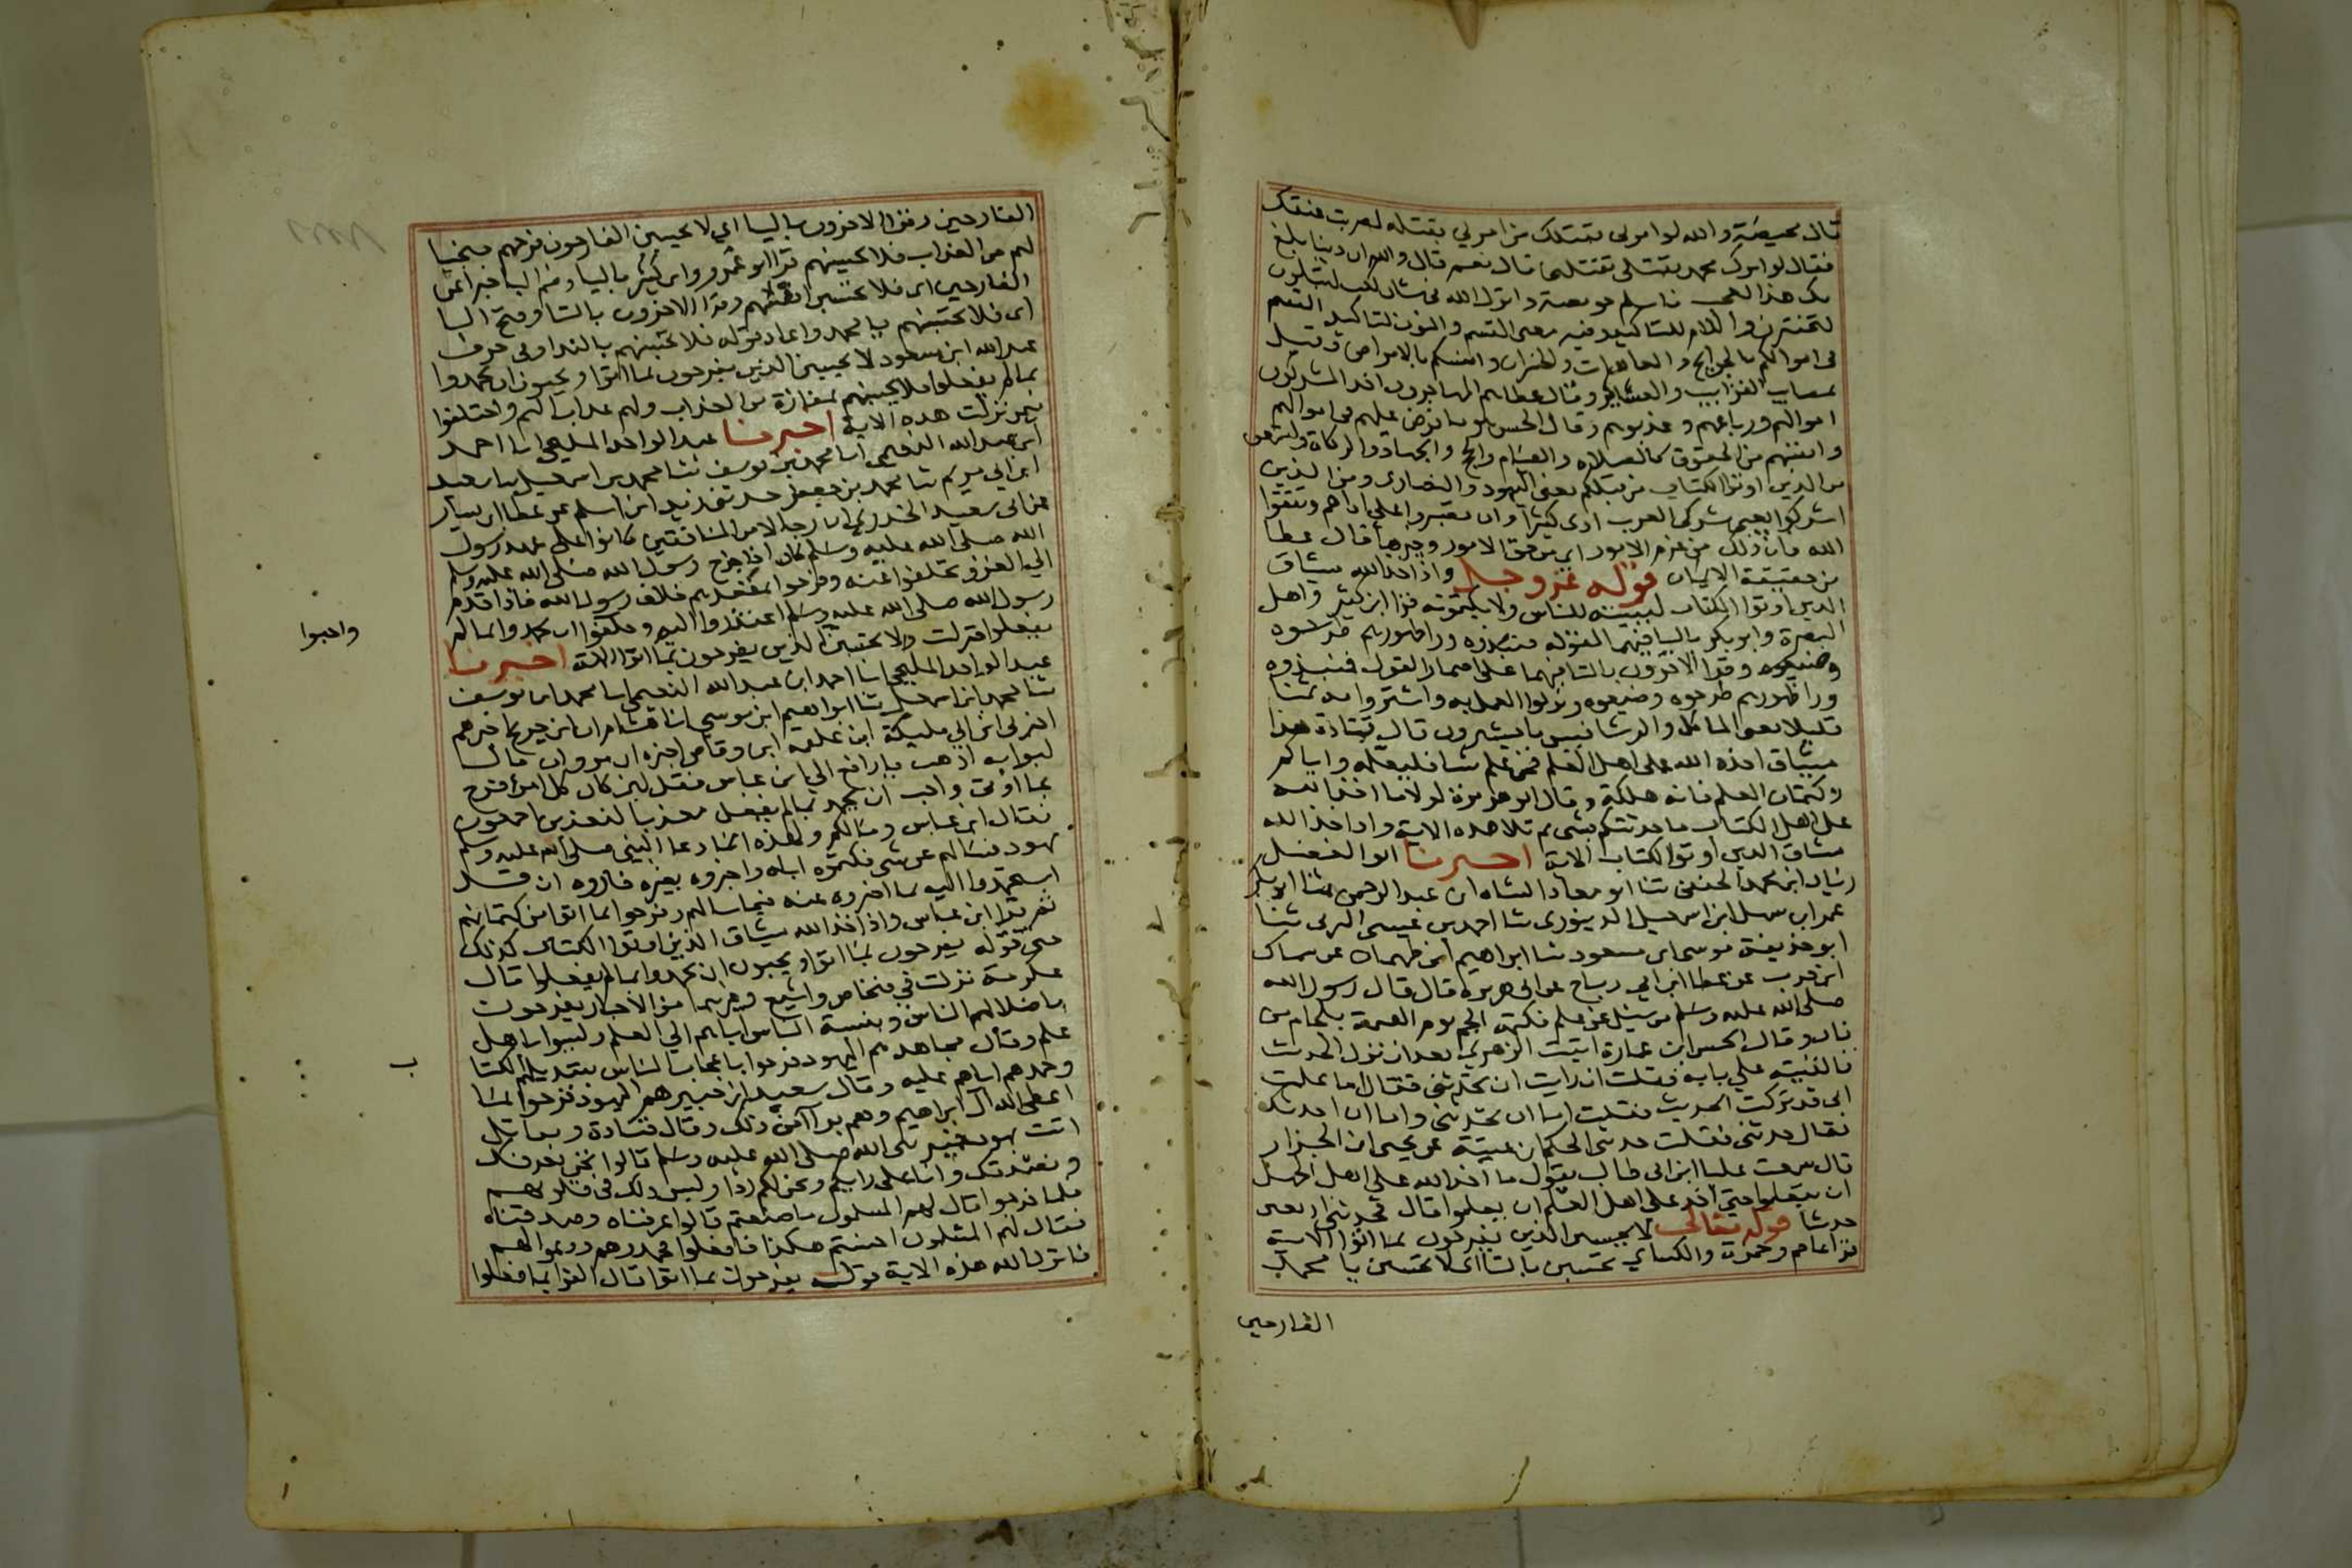 قال محيصة والله لو امرني بقتلك من امرني بقتله لضربت عنقك
فقال لو امرك محمد بقتلي تقتلني قال نعم قال والله ان دينا بلغ
بك هذا لعجب فاسلم حويصة وانزل الله في شان كعب لتبلون
لتختبرن واللام للتاكيد وفيه معنى القسم والنون لتاكيد القسم
في اموالكم بالجوايح والعاهات والخسران وانفسكم بالامراض وقيل
بمصايب الاقارب والعشاير وقال عطا هم المهاجرون اخذ المشركون
اموالهم ورباعهم وعذبوهم وقال الحسن هو ما فرض عليهم في اموالهم
وانفسهم من الحقوق كالصلاة والصيام والحج والجهاد والزكاة ولتسمعن
من الذين اوتوا الكتاب من قبلكم يعني اليهود والنصارى ومن الذين
اشركوا يعني مشركي العرب اذى كثيرا وان تصبروا على اذاهم وتتقوا
الله فان ذلك من عزم الامور اي من حق الامور وخيرها قال عطا
من حقيقة الايمان قوله عز وجل واذ اخذ الله ميثاق
الذين اوتوا الكتاب لتبيننه للناس ولا تكتمونه قرا ابن كثير واهل
البصرة وابو بكر باليا فيهما لقوله فنبذوه ورا ظهورهم طرحوه
وضيعوه وقرا الاخرون بالتا فيهما على اضمار القول فنبذوه
ورا ظهورهم طرحوه وضيعوه وتركوا العمل به واشتروا به ثمنا
قليلا يعني الماكل والرشا فبيس ما يشترون قال قتادة هذا
ميثاق اخذه الله على اهل العلم فمن علم شيا فليعلمه واياكم
وكتمان العلم فانه هلكة وقال ابو هريرة لولا ما اخذ الله
على اهل الكتاب ما حدثتكم بشي ثم تلا هذه الاية واذ اخذ الله
ميثاق الذين اوتوا الكتاب الاية اخبرنا ابو الفضل
زياد ابن محمد الحنفي ثنا ابو معاذ الشاه ابن عبد الرحمن ثنا ابو بكر
عمر ابن سهل ابن اسمعيل الدينوري ثنا احمد بن عيسى البرتي ثنا
ابو حذيفة موسى ابن مسعود ثنا ابراهيم ابن طهمان عن سماك
ابن حرب عن عطا ابن ابي رباح عن ابي هريرة قال قال رسول الله
صلى الله عليه وسلم من سيل عن علم فكتمه الجم يوم القيمة بلجام من
نار وقال الحسن ابن عمارة اتيت الزهري بعد ان ترك الحديث
فالفيته على بابه فقلت ان رايت ان تحدثني فقال اما علمت
اني قد تركت الحديث فقلت اما ان تحدثني واما ان احدثك
فقال حدثني فقلت حدثني الحكم ابن عيينة عن يحيى ابن الجزار
قال سمعت عليا ابن ابي طالب يقول ما اخذ الله على اهل الجهل
ان يتعلموا حتى اخذ على اهل العلم ان يعلموا قال فحدثني اربعين
حديثا قوله تعالى لا تحسبن الذين يفرحون بما اتوا الاية
قرا عاصم وحمزة والكساي تحسبن بالتا اي لا تحسبن يا محمد
الفارحين
الفارحين وقرا الاخرون باليا اي لا يحسبن الفارحون فرحهم منجيا
لهم من العذاب فلا تحسبنهم قرا ابو عمرو وابن كثير باليا وضم البا خبرا عن
الفارحين اي فلا يحسبن انفسهم وقرا الاخرون بالتا وفتح البا
اي فلا تحسبنهم يا محمد واعاد قوله فلا تحسبنهم بالندا وفي حرف
عبد الله ابن مسعود لا يحسبن الذين يفرحون بما اتوا ويحبون ان يحمدوا
بما لم يفعلوا فلا يحسبنهم بمفازة من العذاب ولهم عذاب اليم واختلفوا
فيمن نزلت هذه الاية اخبرنا عبد الواحد المليحي انا احمد
ابن عبد الله النعيمي انا محمد بن يوسف ثنا محمد بن اسمعيل ثنا سعيد
ابن ابي مريم ثنا محمد بن جعفر حدثني زيد ابن اسلم عن عطا ابن يسار
عن ابي سعيد الخدري ان رجالا من المنافقين كانوا على عهد رسول
الله صلى الله عليه وسلم كان اذا خرج رسول الله صلى الله عليه وسلم
الى الغزو تخلفوا عنه وفرحوا بمقعدهم خلاف رسول الله فاذا قدم
رسول الله صلى الله عليه وسلم اعتذروا اليه وحلفوا ان يحمدوا بما لم
واحبوا
يفعلوا فنزلت ولا تحسبن الذين يفرحون بما اتوا الاية اخبرنا
عبد الواحد المليحي انا احمد ابن عبد الله النعيمي انا محمد ابن يوسف
ثنا محمد ابن اسمعيل ثنا ابراهيم ابن موسى انا هشام ان ابن جريج اخبرهم
اخبرني ابن ابي مليكة ابن علقمة ابن وقاص اخبره ان مروان قال
لبوابه اذهب يا رافع الى ابن عباس فقل لين كان كل امرئ فرح
بما اوتي واحب ان يحمد بما لم يفعل معذبا لنعذبن اجمعون
فقال ابن عباس وما لكم ولهذه انما دعا النبي صلى الله عليه وسلم
يهود فسالهم عن شي فكتموه اياه واخبروه بغيره فاروه ان قد
استحمدوا اليه بما اخبروه عنه فيما سالهم وفرحوا بما اتوا من كتمانهم
ثم قرا ابن عباس واذ اخذ الله ميثاق الذين اوتوا الكتاب كذلك
حتى قوله يفرحون بما اتوا ويحبون ان يحمدوا بما لم يفعلوا قال
عكرمة نزلت في فنحاص واشيع وغيرهما من الاحبار يفرحون
باضلالهم الناس وبنسبة الناس اياهم الى العلم وليسوا باهل
علم وقال مجاهد هم اليهود فرحوا باعجاب الناس بتبديلهم الكتا
ب
وحمدهم اياهم عليه وقال سعيد ابن جبير هم اليهود فرحوا بما
اعطى الله آل ابراهيم وهم برآ من ذلك وقال قتادة ومقاتل
اتت يهود خيبر نبي الله صلى الله عليه وسلم قالوا نحن نعرفك
ونصدقك وانا على رايكم ونحن لكم ردا وليس ذلك في قلوبهم
فلما خرجوا قال لهم المسلمون ما صنعتم قالوا عرفناه وصدقناه
فقال لهم المسلمون احسنتم هكذا فافعلوا فحمدوهم ودعوا لهم
فانزل الله هذه الاية قوله يفرحون بما اتوا قال الفرا بما فعلوا